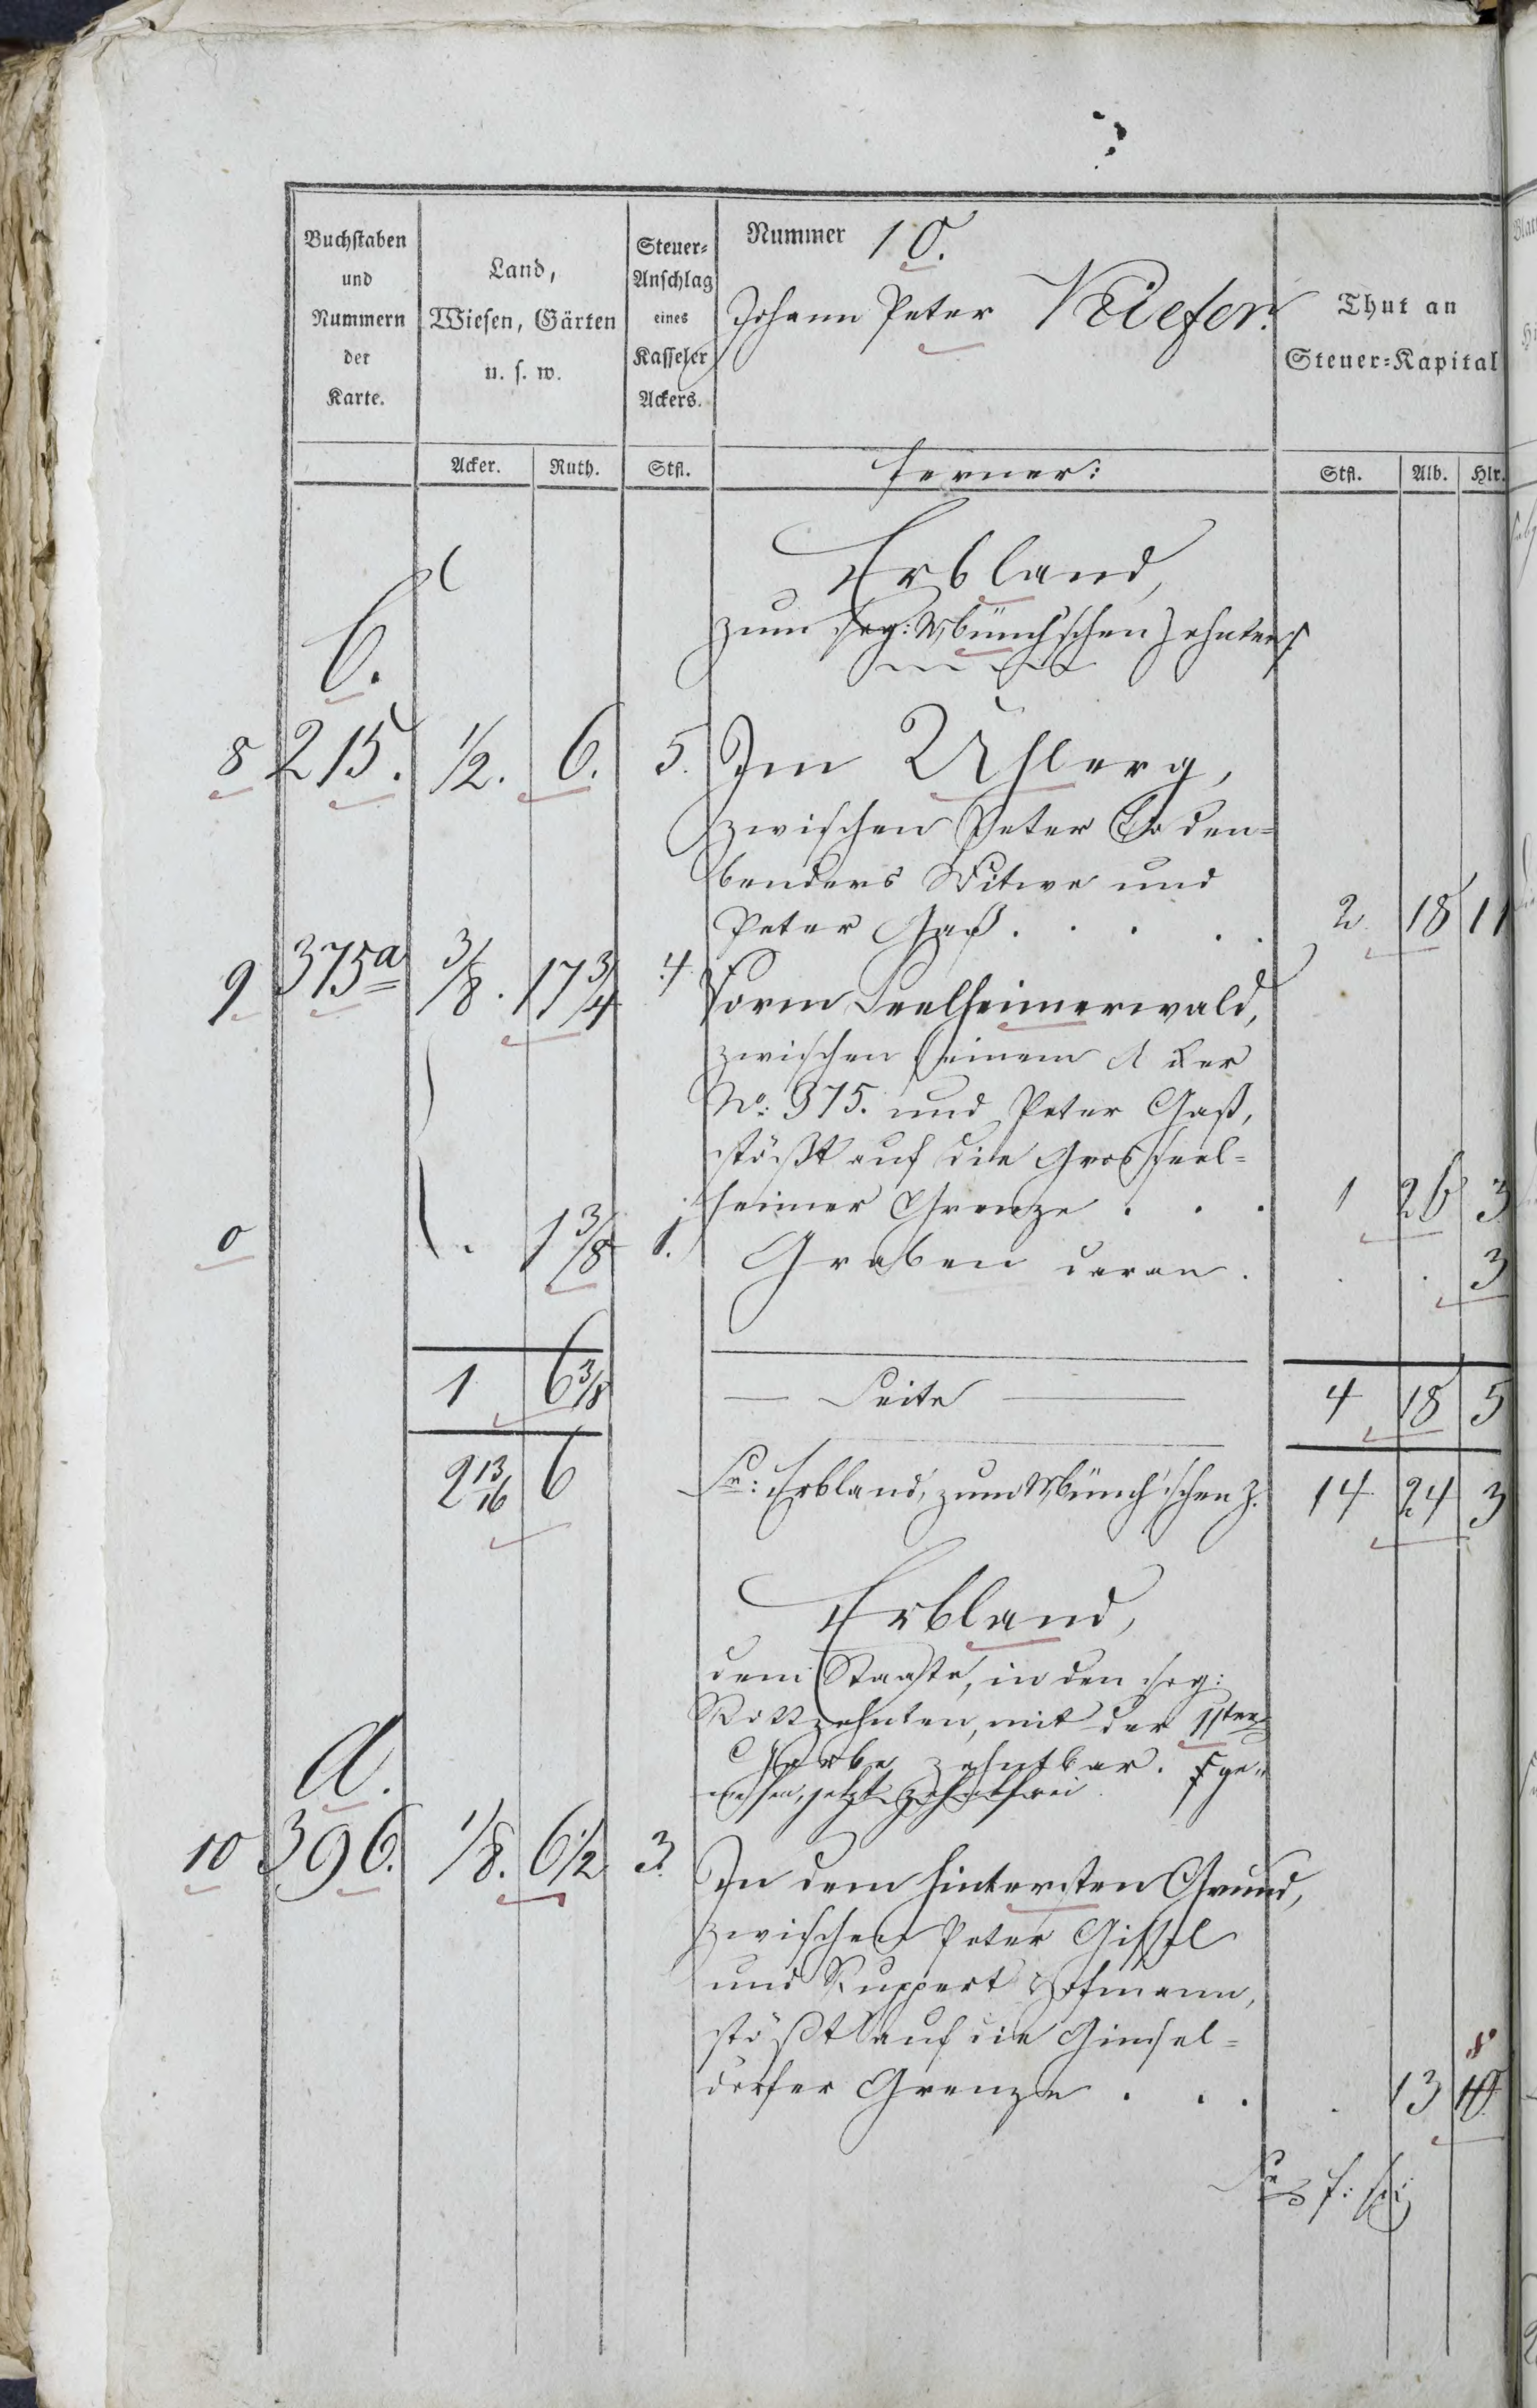 Buchstaben
und
Nummern
der
Karte.
Land,
Wiesen, Gärten
u. s. w.
Steuer-
Anschlag
eines
Kasseler
Ackers.
Nummer 10.
Johann Peter Kiefer.
Thut an
Steuer-Kapital
Acker. Ruth. Stfl. ferner: Stfl. Alb. Hlr.
Erbland,
zum sog: Münch'schen Zehnten
C.
8 215. 1/2. 6. 5. Im Uhlerg,
zwischen Peter Boden-
benders Witwe und
Peter Gaß . . . . . 2 18 11
9 375a 3/8. 17 3/4 4 Vorm Seelheimerwald,
zwischen seinem Acker
No: 375. und Peter Gaß,
stößt auf die Grosseel-
heimer Grenze . . . 1 26 3
0 . 1 3/8 1. Graben daran. . . 3
1 6 3/8 Seite 4 18 5
2 13/16 6 Sa: Erbland, zum Münch'schen Z. 14 24 3
Erbland,
dem Staate, in den sog:
Rottzehnten, mit der 11ten
Garbe zehntbar. ge-
wesen, jetzt zehntfrei
A.
10 396. 1/8. 6 1/2 3. In dem hintersten Grund,
zwischen Peter Gissel
und Ruppert Hofmann,
stößt auf die Ginsel-
dorfer Grenze . . . . 13 10
8